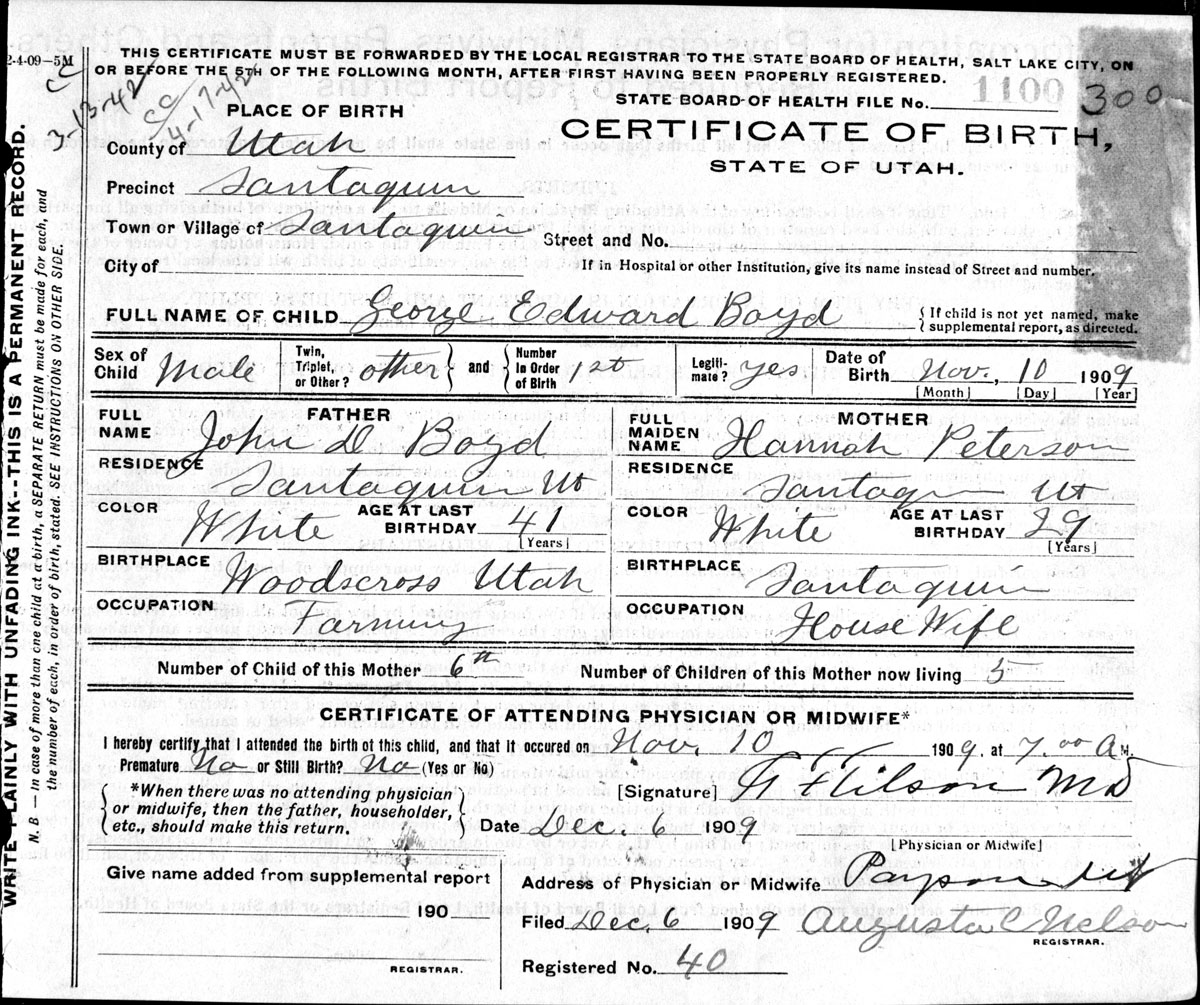 2-4-09-5M
THIS CERTIFICATE MUST BE FORWARDED BY THE LOCAL REGISTRAR TO THE STATE BOARD OF HEALTH, SALT LAKE CITY, ON
OR BEFORE THE 5TH OF THE FOLLOWING MONTH, AFTER FIRST HAVING BEEN PROPERLY REGISTERED.
CC
3-13-42
CC
4-17-42
1100
300
STATE BOARD OF HEALTH FILE No.
PLACE OF BIRTH
CERTIFICATE OF BIRTH,
STATE OF UTAH.
County of Utah
Precinct Santaquin
Town or Village of Santaquin Street and No.
City of If in Hospital or other Institution, give its name instead of Street and number.
FULL NAME OF CHILD George Edward Boyd { If child is not yet named, make
supplemental report, as directed.
Sex of Child Male Twin, Triplet, or Other? other } and { Number in Order of Birth 1st Legiti-mate? yes Date of Birth Nov. 10 1909
[Month] [Day] [Year]
FATHER MOTHER
FULL NAME John D Boyd FULL MAIDEN NAME Hannah Peterson
RESIDENCE Santaquin Ut RESIDENCE Santaquin Ut
COLOR White AGE AT LAST BIRTHDAY 41 [Years] COLOR White AGE AT LAST BIRTHDAY 29 [Years]
BIRTHPLACE Woodscross Utah BIRTHPLACE Santaquin
OCCUPATION Farming OCCUPATION House Wife
Number of Child of this Mother 6th Number of Children of this Mother now living 5
CERTIFICATE OF ATTENDING PHYSICIAN OR MIDWIFE*
I hereby certify that I attended the birth of this child, and that it occured on Nov. 10 1909. at 7.00 A M.
Premature No or Still Birth? No (Yes or No)
[Signature] MD
{ *When there was no attending physician
or midwife, then the father, householder,
etc., should make this return. } Date Dec. 6 1909
[Physician or Midwife]
Give name added from supplemental report
190
REGISTRAR.
Address of Physician or Midwife Payson Ut
Filed Dec. 6 1909 Augusta C Nelson
REGISTRAR.
Registered No. 40
WRITE PLAINLY WITH UNFADING INK--THIS IS A PERMANENT RECORD.
N. B. — In case of more than one child at a birth, a SEPARATE RETURN must be made for each, and
the number of each, in order of birth, stated. SEE INSTRUCTIONS ON OTHER SIDE.